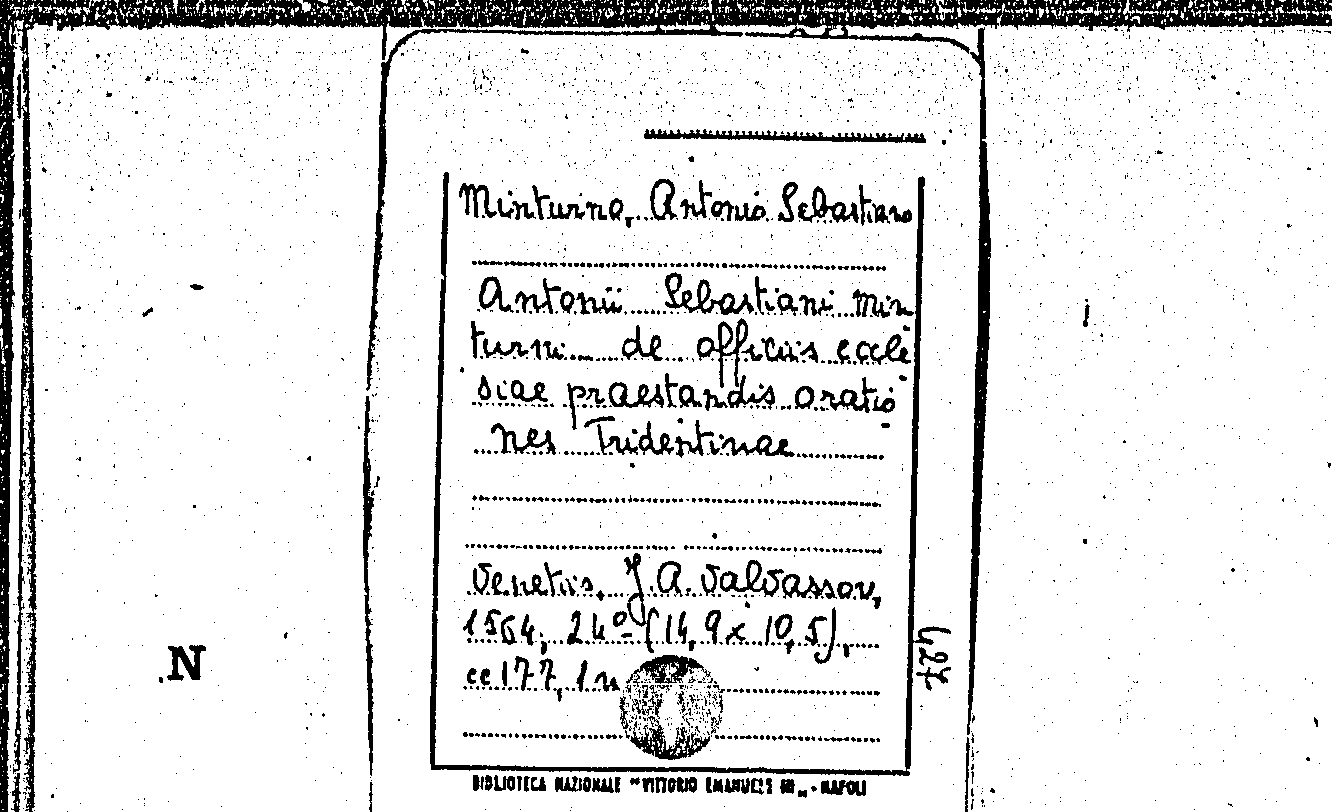 Minturno, Antonio Sebastiano
Antonii Sebastiani Min
turni... de officiis eccle
siae praestandis oratio
nes Tridentinae
Venetiis, J. A. Valvassor,
1564, 24º (14,9 x 10,5),
cc 177, 1 n
427
N
BIBLIOTECA NAZIONALE "VITTORIO EMANUELE III" - NAPOLI